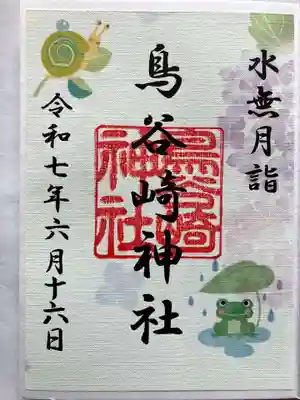 水無月詣
鳥谷崎神社
鳥谷崎神社
令和七年六月十六日